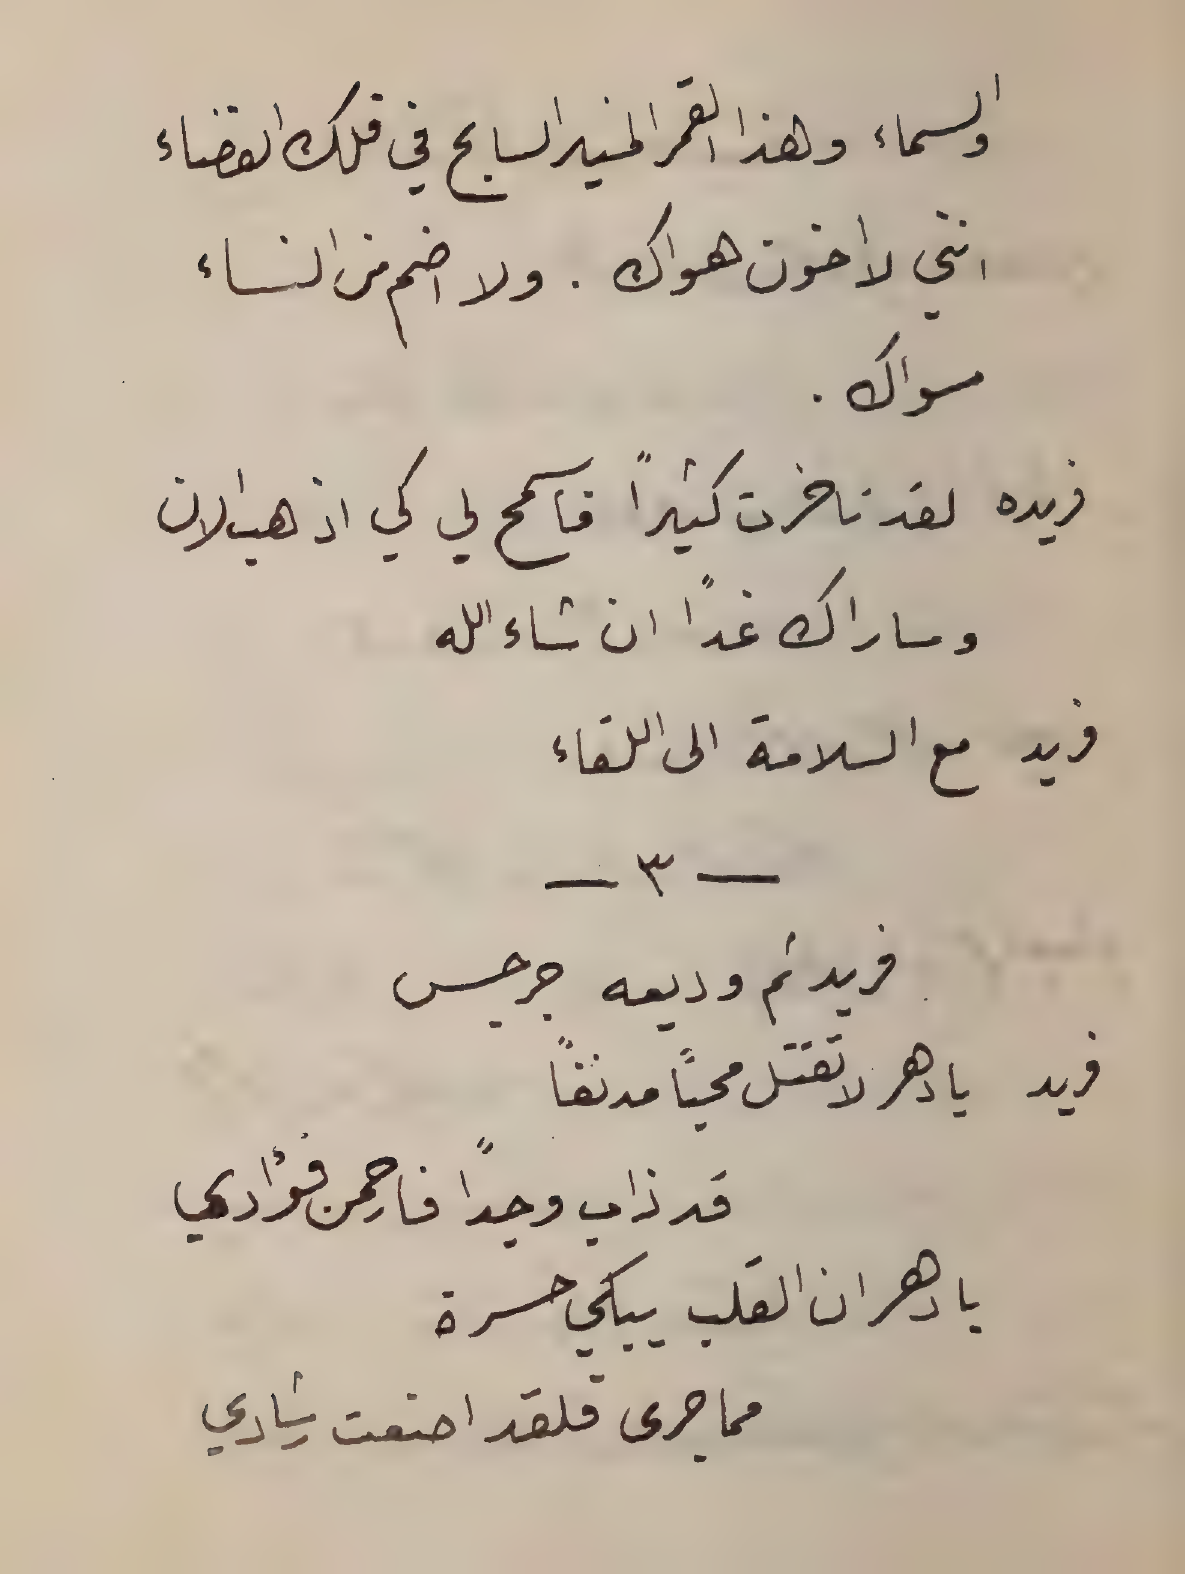 والسماء وهذا القمر المنير السابح في فلك الفضاء
انني لا اخون هواك . ولا اضم من النساء
سواك .
فريده لقد تاخرت كثيراً فاسمح لي كي اذهب الان
وساراك غداً ان شاء الله
فريد مع السلامة الى اللقاء
— ٣ —
فريد ثم وديعه جرجس
فريد يا دهر لا تقتل محباً مدنفاً
قد ذاب وجداً فارحمن فؤادي
يا دهر ان القلب يبكي حسرة
مما جرى فلقد اضعت رشادي